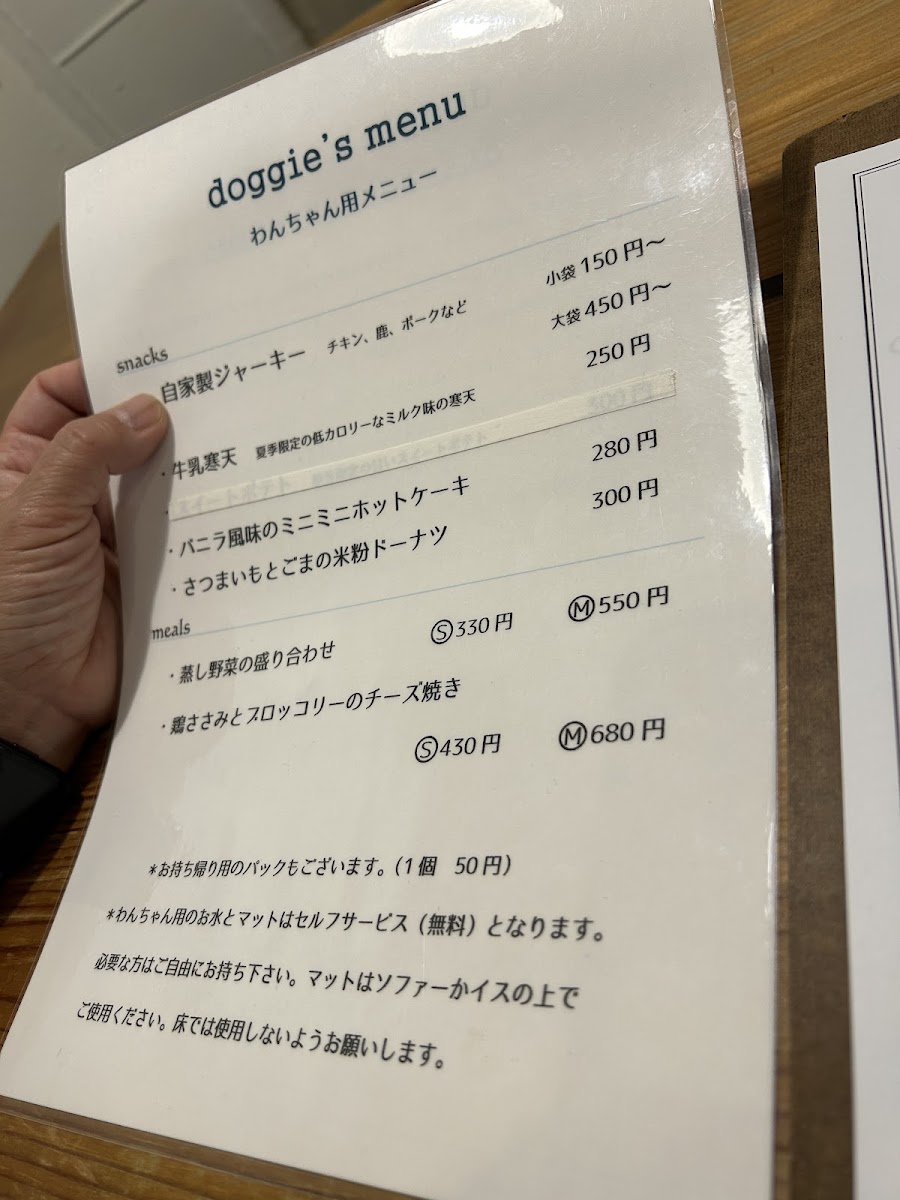 doggie's menu
わんちゃん用メニュー
snacks
自家製ジャーキー チキン、鹿、ポークなど 小袋 150 円～
大袋 450 円～
・牛乳寒天 夏季限定の低カロリーなミルク味の寒天 250 円
・スイートポテト
・バニラ風味のミニミニホットケーキ 280 円
・さつまいもとごまの米粉ドーナツ 300 円
meals
・蒸し野菜の盛り合わせ Ⓢ330 円 Ⓜ550 円
・鶏ささみとブロッコリーのチーズ焼き
Ⓢ430 円 Ⓜ680 円
＊お持ち帰り用のパックもございます。（1 個 50 円）
＊わんちゃん用のお水とマットはセルフサービス（無料）となります。
必要な方はご自由にお持ち下さい。マットはソファーかイスの上で
ご使用ください。床では使用しないようお願いします。